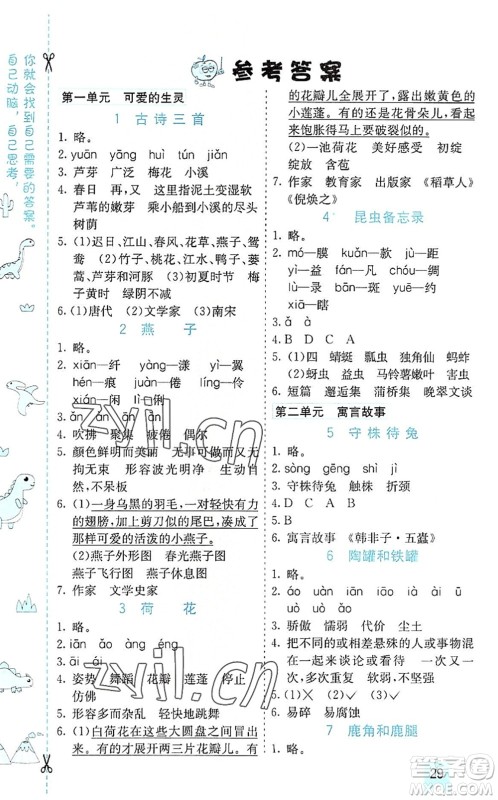 你就会找到自己需要的答案。
自己动脑，自己思考，
参考答案
第一单元 可爱的生灵
1 古诗三首
1. 略。
2. yuān yāng huì tún jiǎn
3. 芦芽 广泛 梅花 小溪
4. 春日 再、又 这里指泥土变湿软
芦苇的嫩芽 乘小船到小溪的尽头
树荫
5. (1)迟日、江山、春风、花草、燕子、鸳
鸯 (2)竹子、桃花、江水、鸭子、蒌
蒿、芦芽和河豚 (3)初夏时节 梅
子黄时 阴影不减
6. (1)唐代 (2)文学家 (3)南宋
2 燕子
1. 略。
2. xiān—纤 yàng—漾 yì—翼
hén—痕 ǒu—偶 juàn—倦
xián—闲 lüè—掠 lì—俐
3. ǎn án ān àn
4. 吹拂 聚集 疲倦 偶尔
5. 颜色鲜明而美丽 活泼自然而无
拘无束 形容波光明净 灵活,不
呆板
6. (1)一身乌黑的羽毛,一对轻快有力
的翅膀,加上剪刀似的尾巴,凑成了
那样可爱的活泼的小燕子。
(2)燕子外形图 春光燕子图
燕子飞行图 燕子休息图
7. 作家 文学史家
3 荷花
1. 略。
3. āi ái
4. 姿势 舞蹈 花瓣 莲蓬 停止
仿佛
5. 形容多而杂乱 轻快地跳舞
6. (1)白荷花在这些大圆盘之间冒出
来。有的才展开两三片花瓣儿。有
的花瓣儿全展开了,露出嫩黄色的
小莲蓬。有的还是花骨朵儿,看起
来饱胀得马上要破裂似的。
(2)一池荷花 美好感受 初绽
绽放 含苞
7. 作家 教育家 出版家 《稻草人》
《倪焕之》
4 昆虫备忘录
1. 略。
2. mó—膜 kuǎn—款 jù—距
yì—益 fán—繁 yún—匀
lù—录 shā—鲨 zāi—灾
xiáng—翔
3. ǎ à
4. B D C A
5. (1)四 蜻蜓 瓢虫 独角仙 蚂蚱
(2)蚜虫 益虫 马铃薯嫩叶 害虫
6. 短篇 邂逅集 蒲桥集 晚翠文谈
第二单元 寓言故事
5 守株待兔
1. 略。
2. sòng gēng shì jì
3. 守株待兔 触株 折颈
4. D C A B
5. A
6. 寓言故事 《韩非子·五蠹》
6 陶罐和铁罐
1. 略。
3. 骄傲 谦虚 代价 怒火 尘土
4. 把不同的或相差悬殊的人或事物
同样对待 极多次,多到难以计数
一次次,多次重复 软弱,不坚强
6. 易碎 易腐蚀
7 鹿角和鹿腿
29
zyjl.cn
zyjl.cn
答案圈